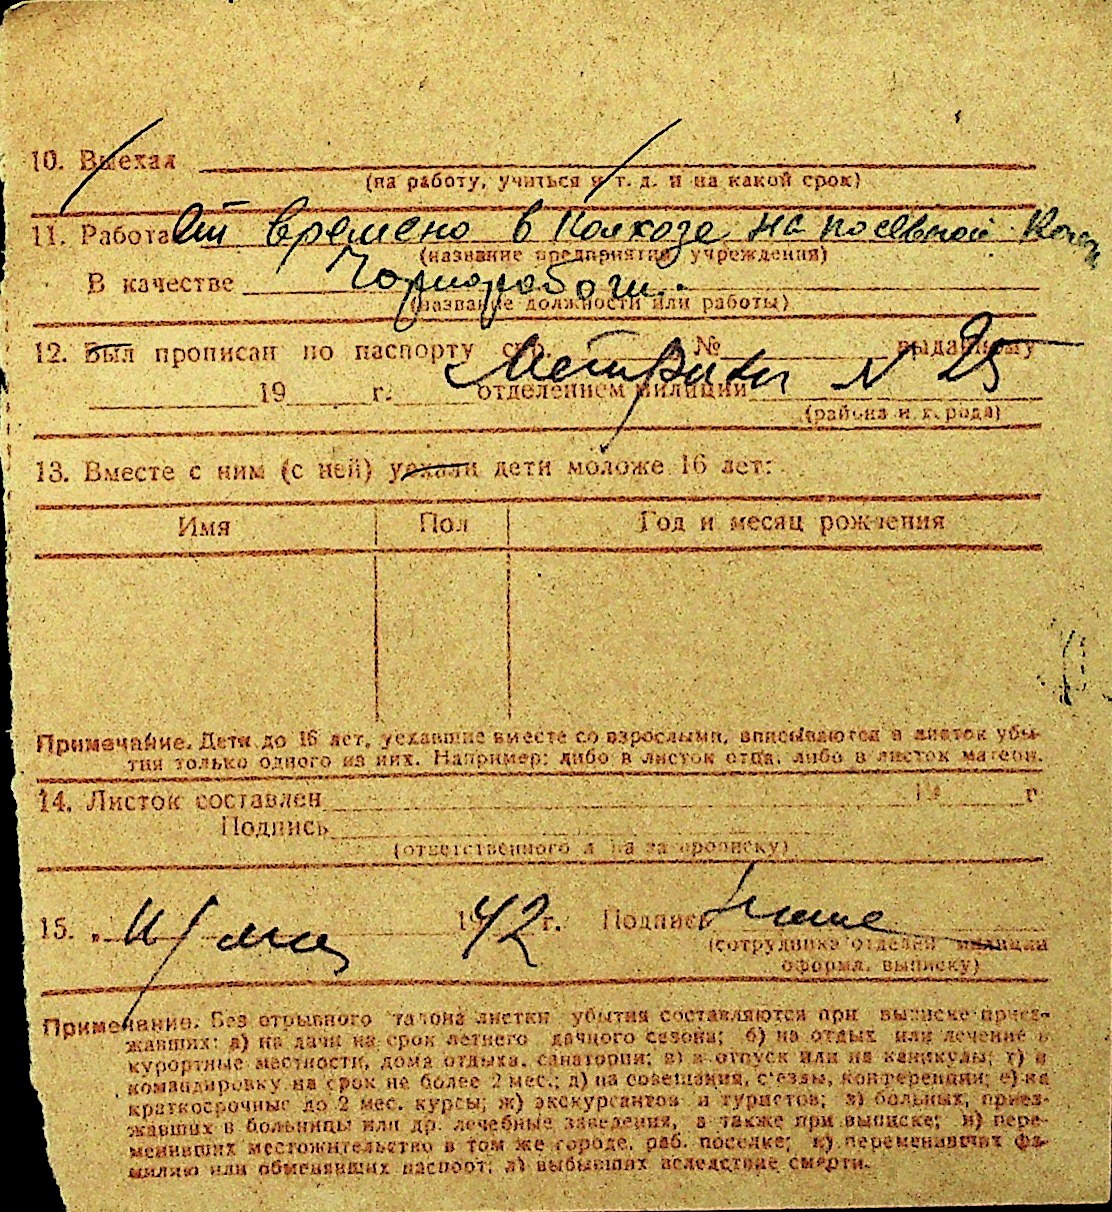 10. Выехал
(на работу, учиться и т. д. и на какой срок)
11. Работал времено в Колхозе на посевной
(название предприятия, учреждения)
В качестве Чорнорабочи.
(название должности или работы)
12. Был прописан по паспорту сер. № выданному
Метрики N 25
19 г. отделением милиции
(района и города)
13. Вместе с ним (с ней) уехали дети моложе 16 лет:
Имя Пол Год и месяц рождения
Примечание. Дети до 16 лет, уехавшие вместе со взрослыми, вписываются в листок убы-
тия только одного из них. Например: либо в листок отца, либо в листок матери.
14. Листок составлен 19 г
Подпись
(ответственного л на за прописку)
15. " 1942 г. Подпись
(сотрудника отделен милиции
оформл. выписку)
Примечание. Без отрывного талона листки убытия составляются при выписке приез-
жавших: а) на дачи на срок летнего дачного сезона; б) на отдых или лечение в
курортные местности, дома отдыха, санатории; в) в отпуск или на каникулы; г) в
командировку на срок не более 2 мес.; д) на совещания, с'езды, конференции; е) на
краткосрочные до 2 мес. курсы; ж) экскурсантов и туристов; з) больных, приез-
жавших в больницы или др. лечебные заведения, а также при выписке; и) пере-
менивших местожительство в том же городе, раб. поселке; к) переменивших фа-
милию или обменявших паспорт; л) выбывших вследствие смерти.